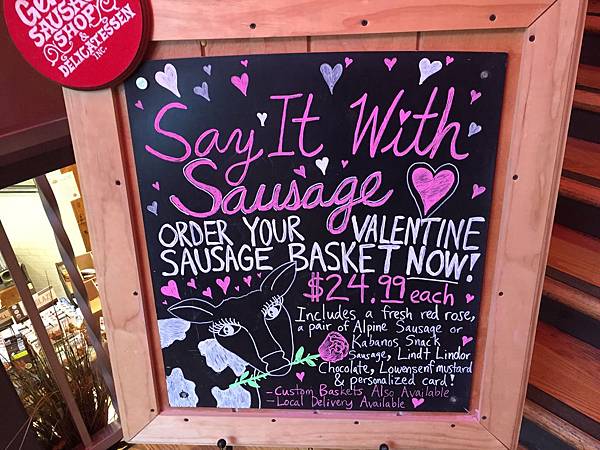 SAUSAGE
SHOP
&
DELICATESSEN
INC.
Say It With
Sausage
ORDER YOUR VALENTINE
SAUSAGE BASKET NOW!
$24.99 each
Includes a fresh red rose,
a pair of Alpine Sausage or
Kabanos Snack
Sausage, Lindt Lindor
Chocolate, Lowensenf mustard
& personalized card!
-Custom Baskets Also Available
-Local Delivery Available